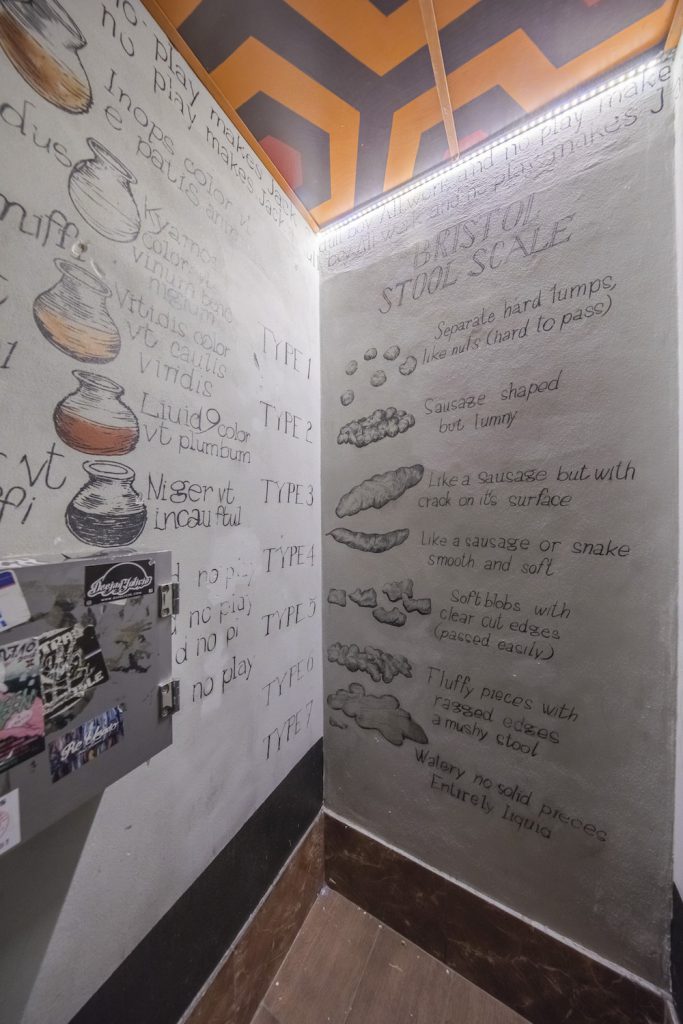 no play makes Jack
no play makes Jack
Inops color vt
e patis
dus
Kyamos
color vt
vinum bene
nigrum
Viridis color
vt caulis
viridis
Liuid9 color
vt plumbum
vt
Niger vt
incau ftul
no play
no play
d no pl
no play
TYPE 1
TYPE 2
TYPE 3
TYPE 4
TYPE 5
TYPE 6
TYPE 7
dull boy All work and no play make
work and no play makes J
BRISTOL
STOOL SCALE
Separate hard lumps,
like nuts (hard to pass)
Sausage shaped
but lumny
Like a sausage but with
crack on it's surface
Like a sausage or snake
smooth and soft
Soft blobs with
clear cut edges
(passed easily)
Fluffy pieces with
ragged edges
a mushy stool
Watery no solid pieces
Entirely liquid